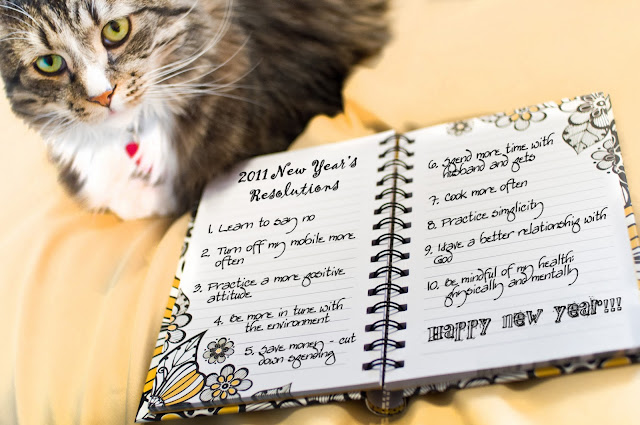 2011 New Year's
Resolutions
1. Learn to say no
2. Turn off my mobile more
often
3. Practice a more positive
attitude
4. Be more in tune with
the environment
5. Save money - cut
down spending
6. Spend more time with
husband and pets
7. Cook more often
8. Practice simplicity
9. Have a better relationship with
God
10. Be mindful of my health:
physically and mentally
Happy new year!!!